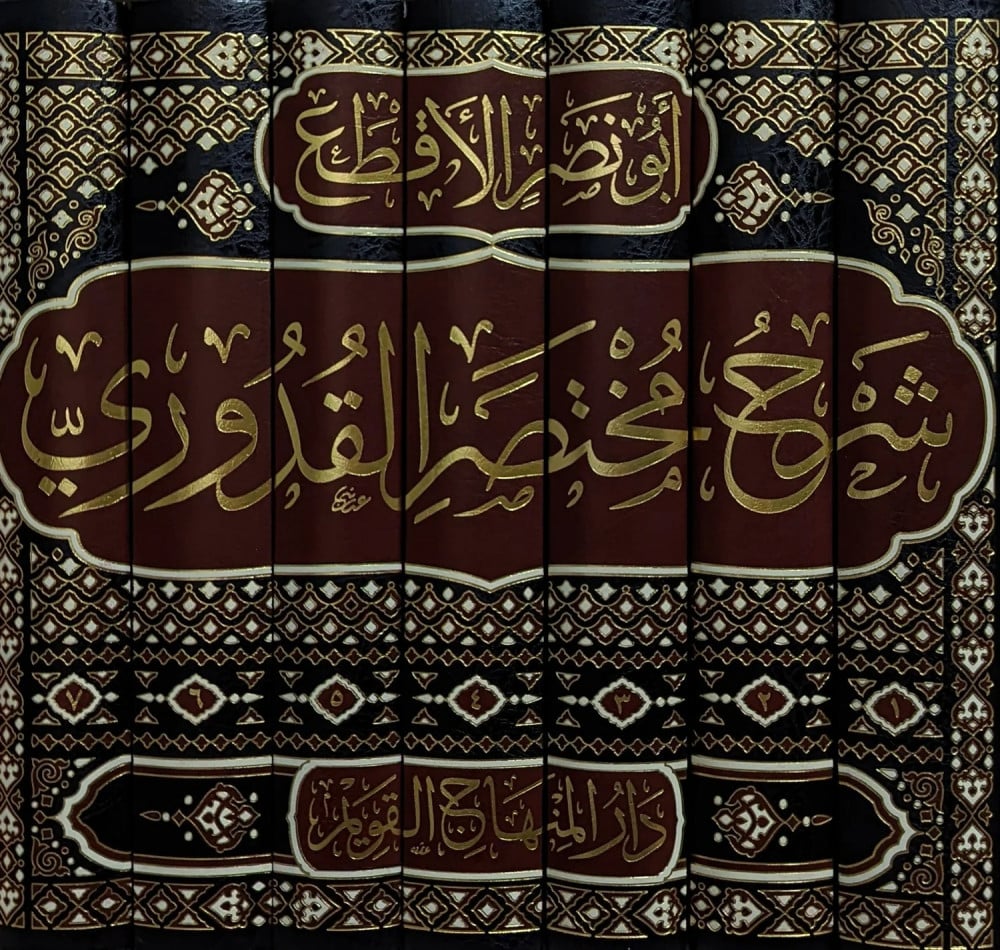 أَبُو نَصْرٍ الأَقْطَع
شَرْحُ مُخْتَصَرِ القُدُورِيِّ
٧ ٦ ٥ ٤ ٣ ٢ ١
دَارُ المِنْهَاجِ القَوِيمِ